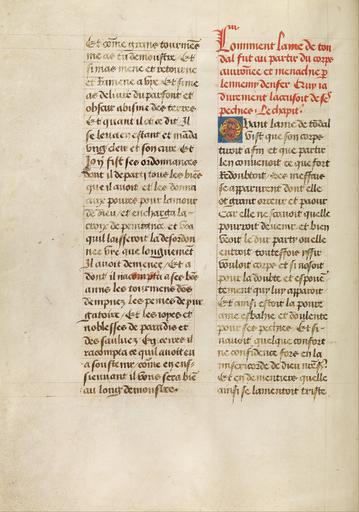 Et côme grans tourmês
me as tu demonstre. Et
si mas mene et retourne
et ramene a vye. Et si me
as delivre du parfont et
obscur abisme des terres
Et quant il ot ce dit. Il
se leva en estant et māda
ung clerc et son cure. Et
la fist ses ordonnances
dont il departy tous les biēs
que il avoit et les donna
aux povres pour lamour
de dieu. et encharga la
croix de penitance et voa
quil laisseroit la desordon
nee vye que longuement
Il avoit demenee. Et a
dont il racompta a ses boēs
amis les tourmens des
dempnez les peines de pur
gatoire. Et les ioyes et
noblesses de paradis et
des sauluez. Et apres il
racompta ce quil avoit eu
a soustenir. côme en ensi
sieuvant il vous sera biē
au long demonstre.
Comment lame de ton
dal fut au partir du corps
avironnee et menachee
lennemy denfer. Et y la
durement laccusoit de ses
pechies. Le chapit.
Quant lame de tōdal
vist que son corps
tiroit a fin et que partir
len convenoit ce que fort
redoubtoit. Ses meffais
se apparurent dont elle
ot grant orreur et paour
Car elle ne scavoit quelle
pourroit devenir. et bien
veoit le dur party ou elle
entroit toutesfois yssir
vouloit du corps et si nosoit
pour la doubte et espoven
tement quy luy apparoit
Et ainsi estoit la povre
ame esbahie et doulente
pour ses pechies. Et si
navoit quelque confort
ne confidence fors en la
misericorde de dieu nre sr.
Et en dementiers quelle
ainsi se lamentoit triste